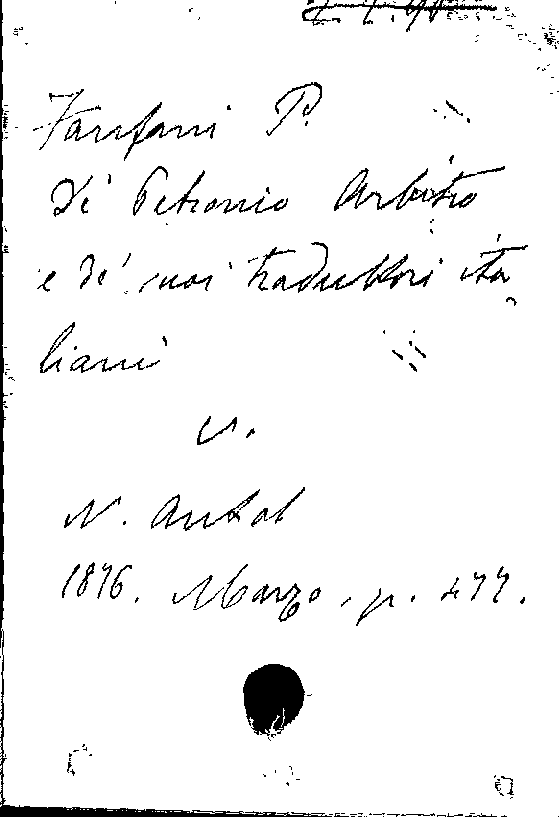 Fanfani P.
Di Petronio Arbitro
e de' suoi traduttori ita
liani
v.
N. Antol
1876. Marzo, p. 477.